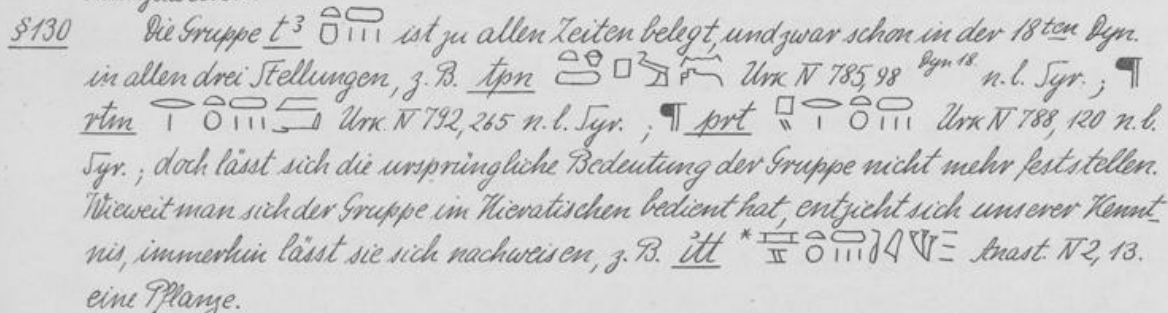 §130 Die Gruppe t3 ist zu allen Zeiten belegt, und zwar schon in der 18ten Dyn.
in allen drei Stellungen, z. B. tpn Urk IV 785,98 Dyn 18. n. l. Syr. ; ¶
rtm Urk. IV 792, 265 n. l. Syr. ; ¶ prt Urk IV 788, 120 n. l.
Syr. ; doch lässt sich die ursprüngliche Bedeutung der Gruppe nicht mehr feststellen.
Wieweit man sich der Gruppe im Hieratischen bedient hat, entzieht sich unserer Kennt-
nis, immerhin lässt sie sich nachweisen, z. B. itt * Anast. IV 2, 13.
eine Pflanze.